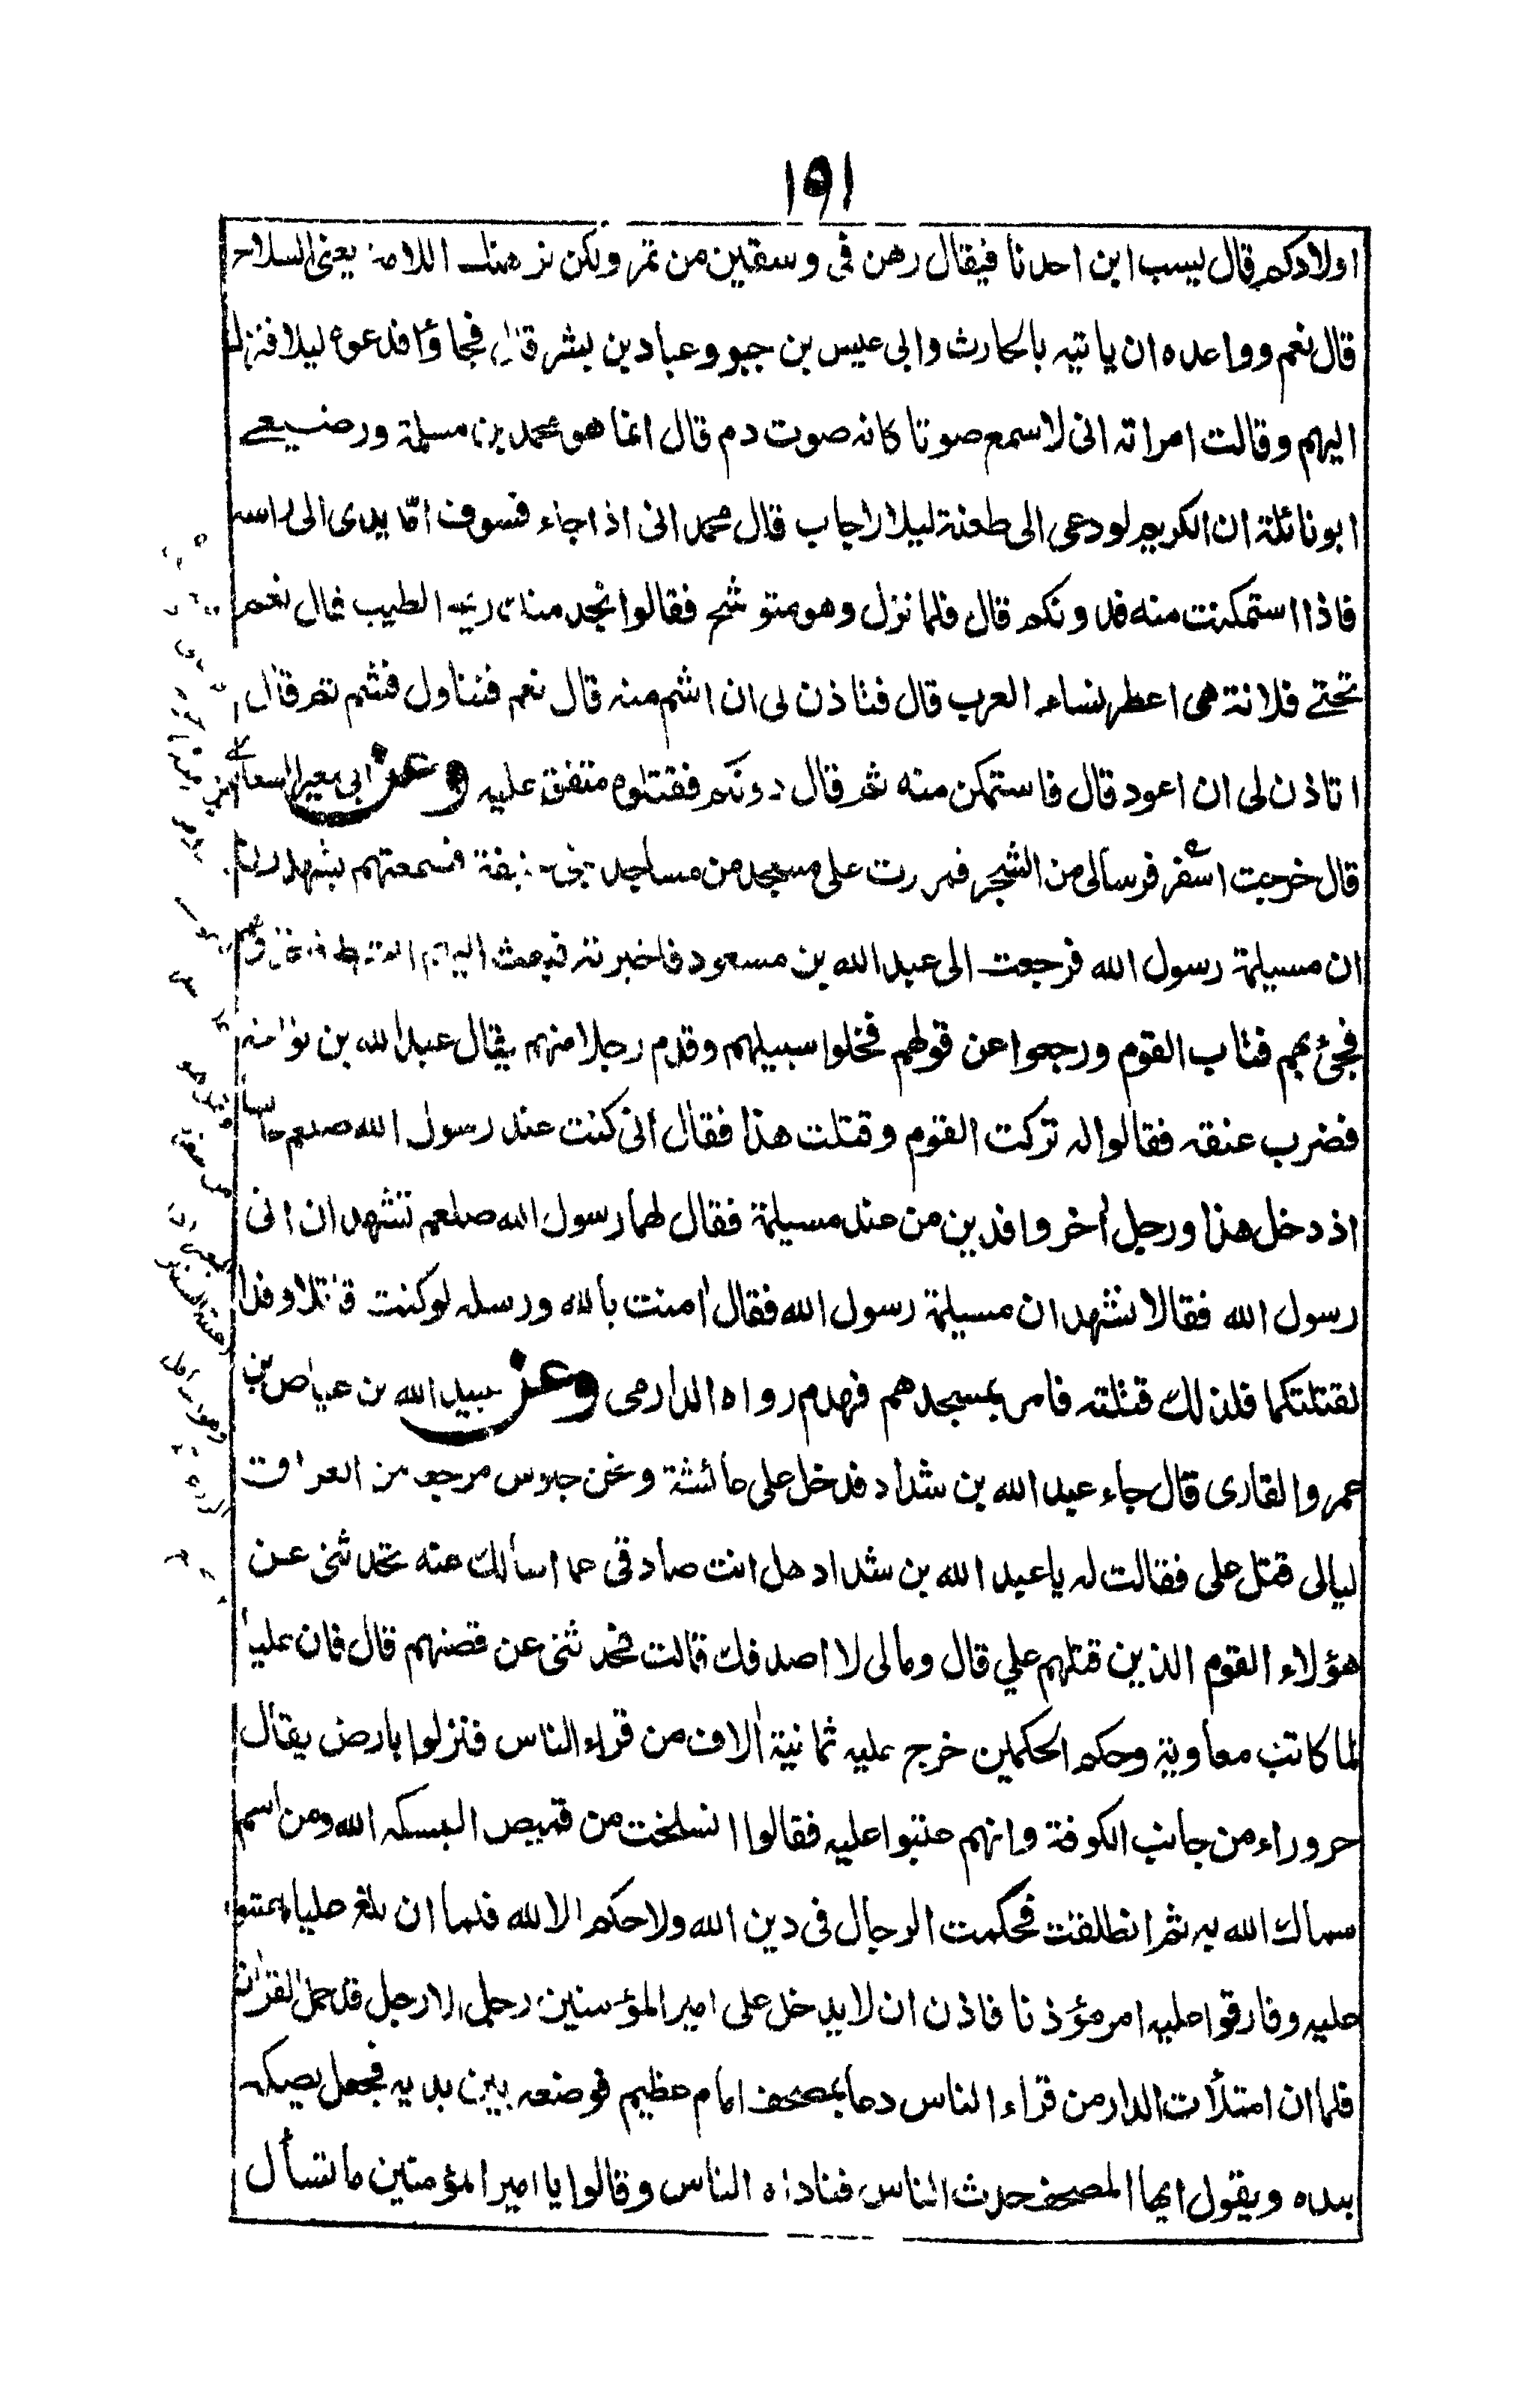 ١٩١
اولادكم قال يسب ابن احدنا فيقال رهن فى وسقين من تمر ولكن نرهنك اللامة يعنى السلاح
قال نعم وواعده ان ياتيه بالحارث وابى عيس بن جبر وعباد بن بشر قال فجاؤا فدعوه ليلا فنزل
اليهم وقالت امراته انى لاسمع صوتا كانه صوت دم قال انما هو محمد بن مسلمة ورضيعى
ابو نائلة ان الكريم لو دعى الى طعنة ليلا لاجاب قال محمد انى اذا جاء فسوف امد يدى الى راسه
فاذا استمكنت منه فدونكم قال فلما نزل وهو متوشح فقالوا نجد منك ريح الطيب قال نعم
تحتى فلانة هى اعطر نساء العرب قال فتاذن لى ان اشم منه قال نعم فتناول فشم ثم قال
اتاذن لى ان اعود قال فاستمكن منه ثم قال دونكم فقتلوه متفق عليه وعن ابى معيز السعدى
قال خرجت اسفر فرسالى من الشجر فمررت على مسجد من مساجد بنى حنيفة فسمعتهم يشهدون
ان مسيلمة رسول الله فرجعت الى عبد الله بن مسعود فاخبرته فبعث اليهم الشرط
فجئ بهم فتاب القوم ورجعوا عن قولهم فخلوا سبيلهم وقدم رجلا منهم يقال عبد الله بن نواحه
فضرب عنقه فقالوا له تركت القوم وقتلت هذا فقال انى كنت عند رسول الله صلعم جالسا
اذ دخل هذا ورجل أخر وافدين من عند مسيلمة فقال لهما رسول الله صلعم تشهدان انى
رسول الله فقالا نشهد ان مسيلمة رسول الله فقال أمنت بالله ورسله لو كنت قاتلا وفدا
لقتلتكما فلذلك قتلته فامر بمسجدهم فهدم رواه الدارمى وعن عبيد الله بن عياض بن
عمرو القارى قال جاء عبد الله بن شداد فدخل على عائشة ونحن جلوس مرجعه من العراق
ليالى قتل على فقالت له يا عبد الله بن شداد هل انت صادقى عما اسألك عنه تحدثنى عن
هؤلاء القوم الذين قتلهم علي قال ومالى لا اصدقك قالت فحدثنى عن قصتهم قال فان عليا
لما كاتب معاوية وحكم الحكمين خرج عليه ثمانية الاف من قراء الناس فنزلوا بارض يقال
حروراء من جانب الكوفة وانهم عتبوا عليه فقالوا انسلخت من قميص البسكه الله ومن اسم
سماك الله به ثم انطلقت فحكمت الرجال فى دين الله ولا حكم الا لله فلما ان بلغ عليا ما عتبوا
عليه وفارقوا عليه امر مؤذنا فاذن ان لا يدخل على امير المؤمنين رجل الا رجل قد حمل القرأن
فلما ان امتلأت الدار من قراء الناس دعا بمصحف امام عظيم فوضعه بين يديه فجعل يصكه
بيده ويقول ايها المصحف حدث الناس فناداه الناس وقالوا يا امير المؤمنين ما تسأل